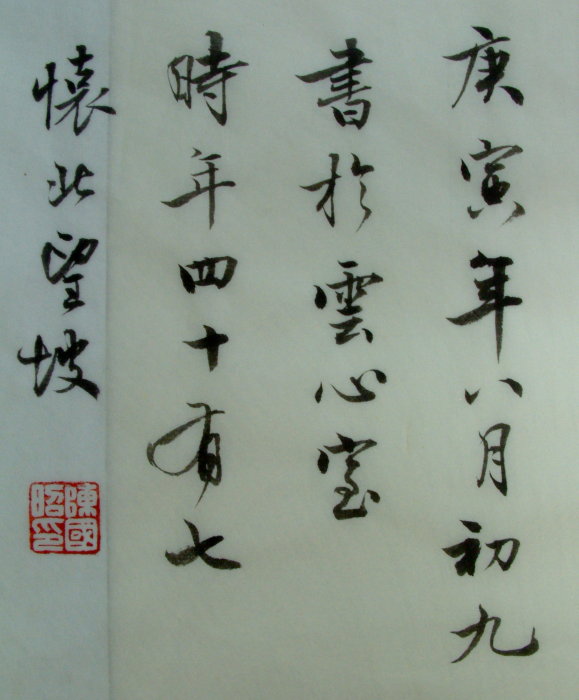 庚寅年八月初九
書於雲心室
時年四十有七
懷北望坡
陳國昭印